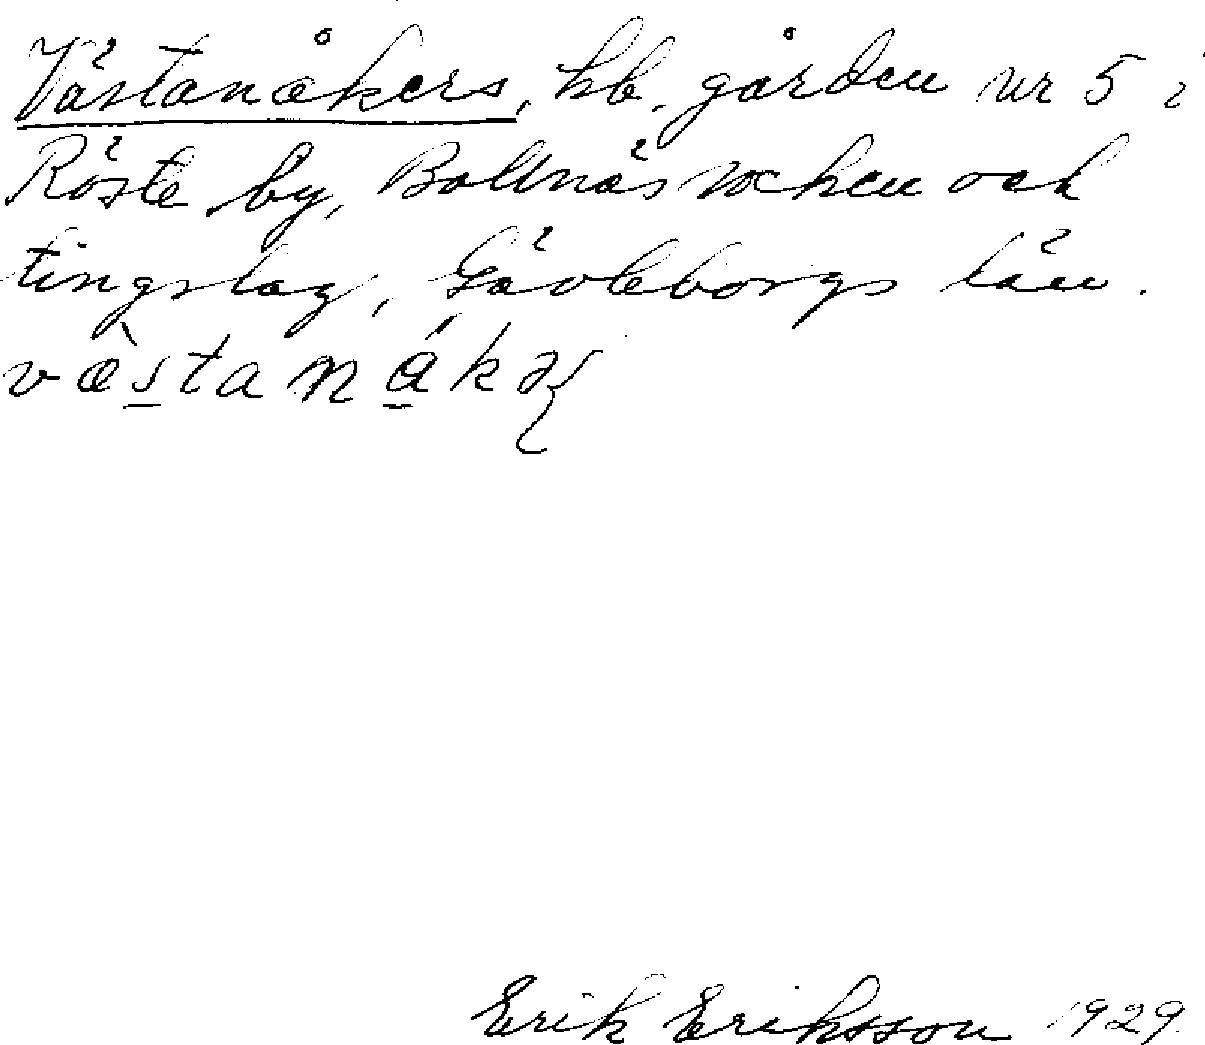 Västanåkers, hb. gården nr 5 i
Röste by, Bollnäs socken och
tingslag, Gävleborgs län.
Erik Eriksson 1929